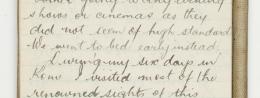 going to any evening
shows or cinemas as they
did not seem of high standard.
We went to bed early instead.
During my six days in
Kew I visited most of the
renowned sights of this